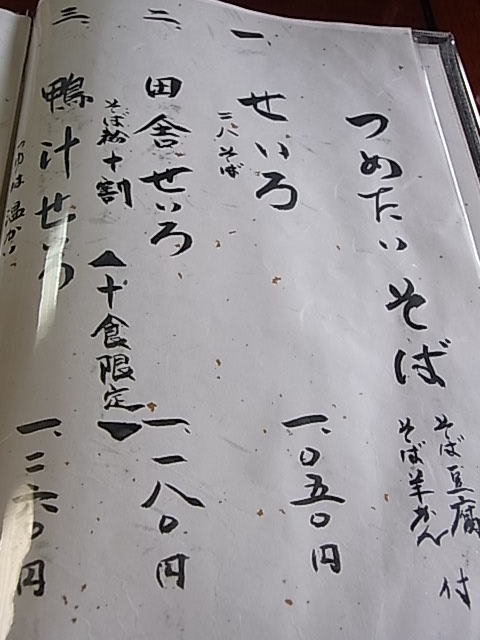 つめたいそば
そば豆腐
そば羊かん 付
一、せいろ 一、〇五〇円
二八そば
二、田舎せいろ 一、一八〇円
そば粉十割 【十食限定】
三、鴨汁せいろ 一、二六〇円
つゆは温かい